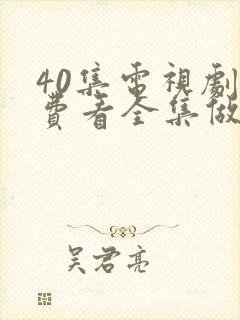 40集電視劇
費看全集做
吴君亮